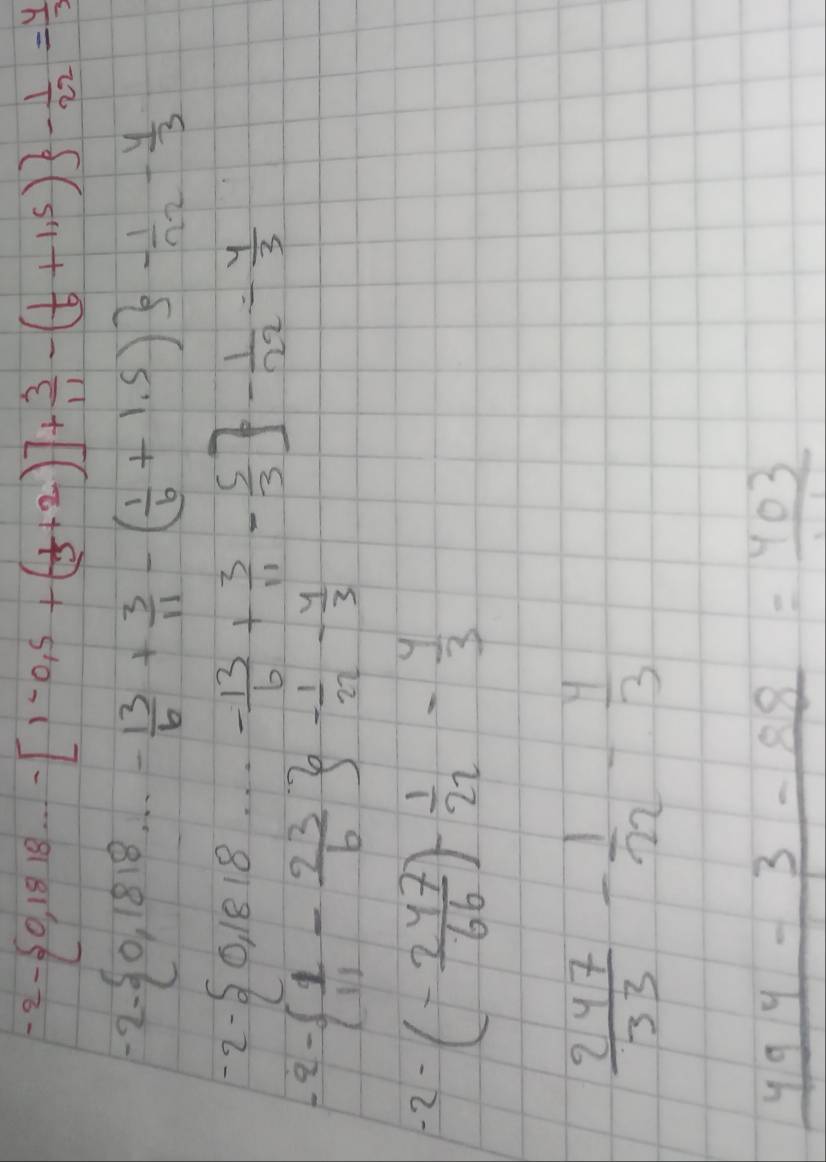 -2-{0,1818... -[1-0,5 +(1/3+2)]+3/11-(1/6+1,5)}-1/22=4/3
-2-{0,1818... -13/6+3/11-(1/6+1,5)}-1/22-4/3
-2-{0,1818 ... -13/6+3/11-5/3]}-1/22-4/3
-2-{1/11-23/6}-1/22-4/3
-2-(-247/66)-1/22-4/3
247/33-1/22-4/3
494-3-88=403